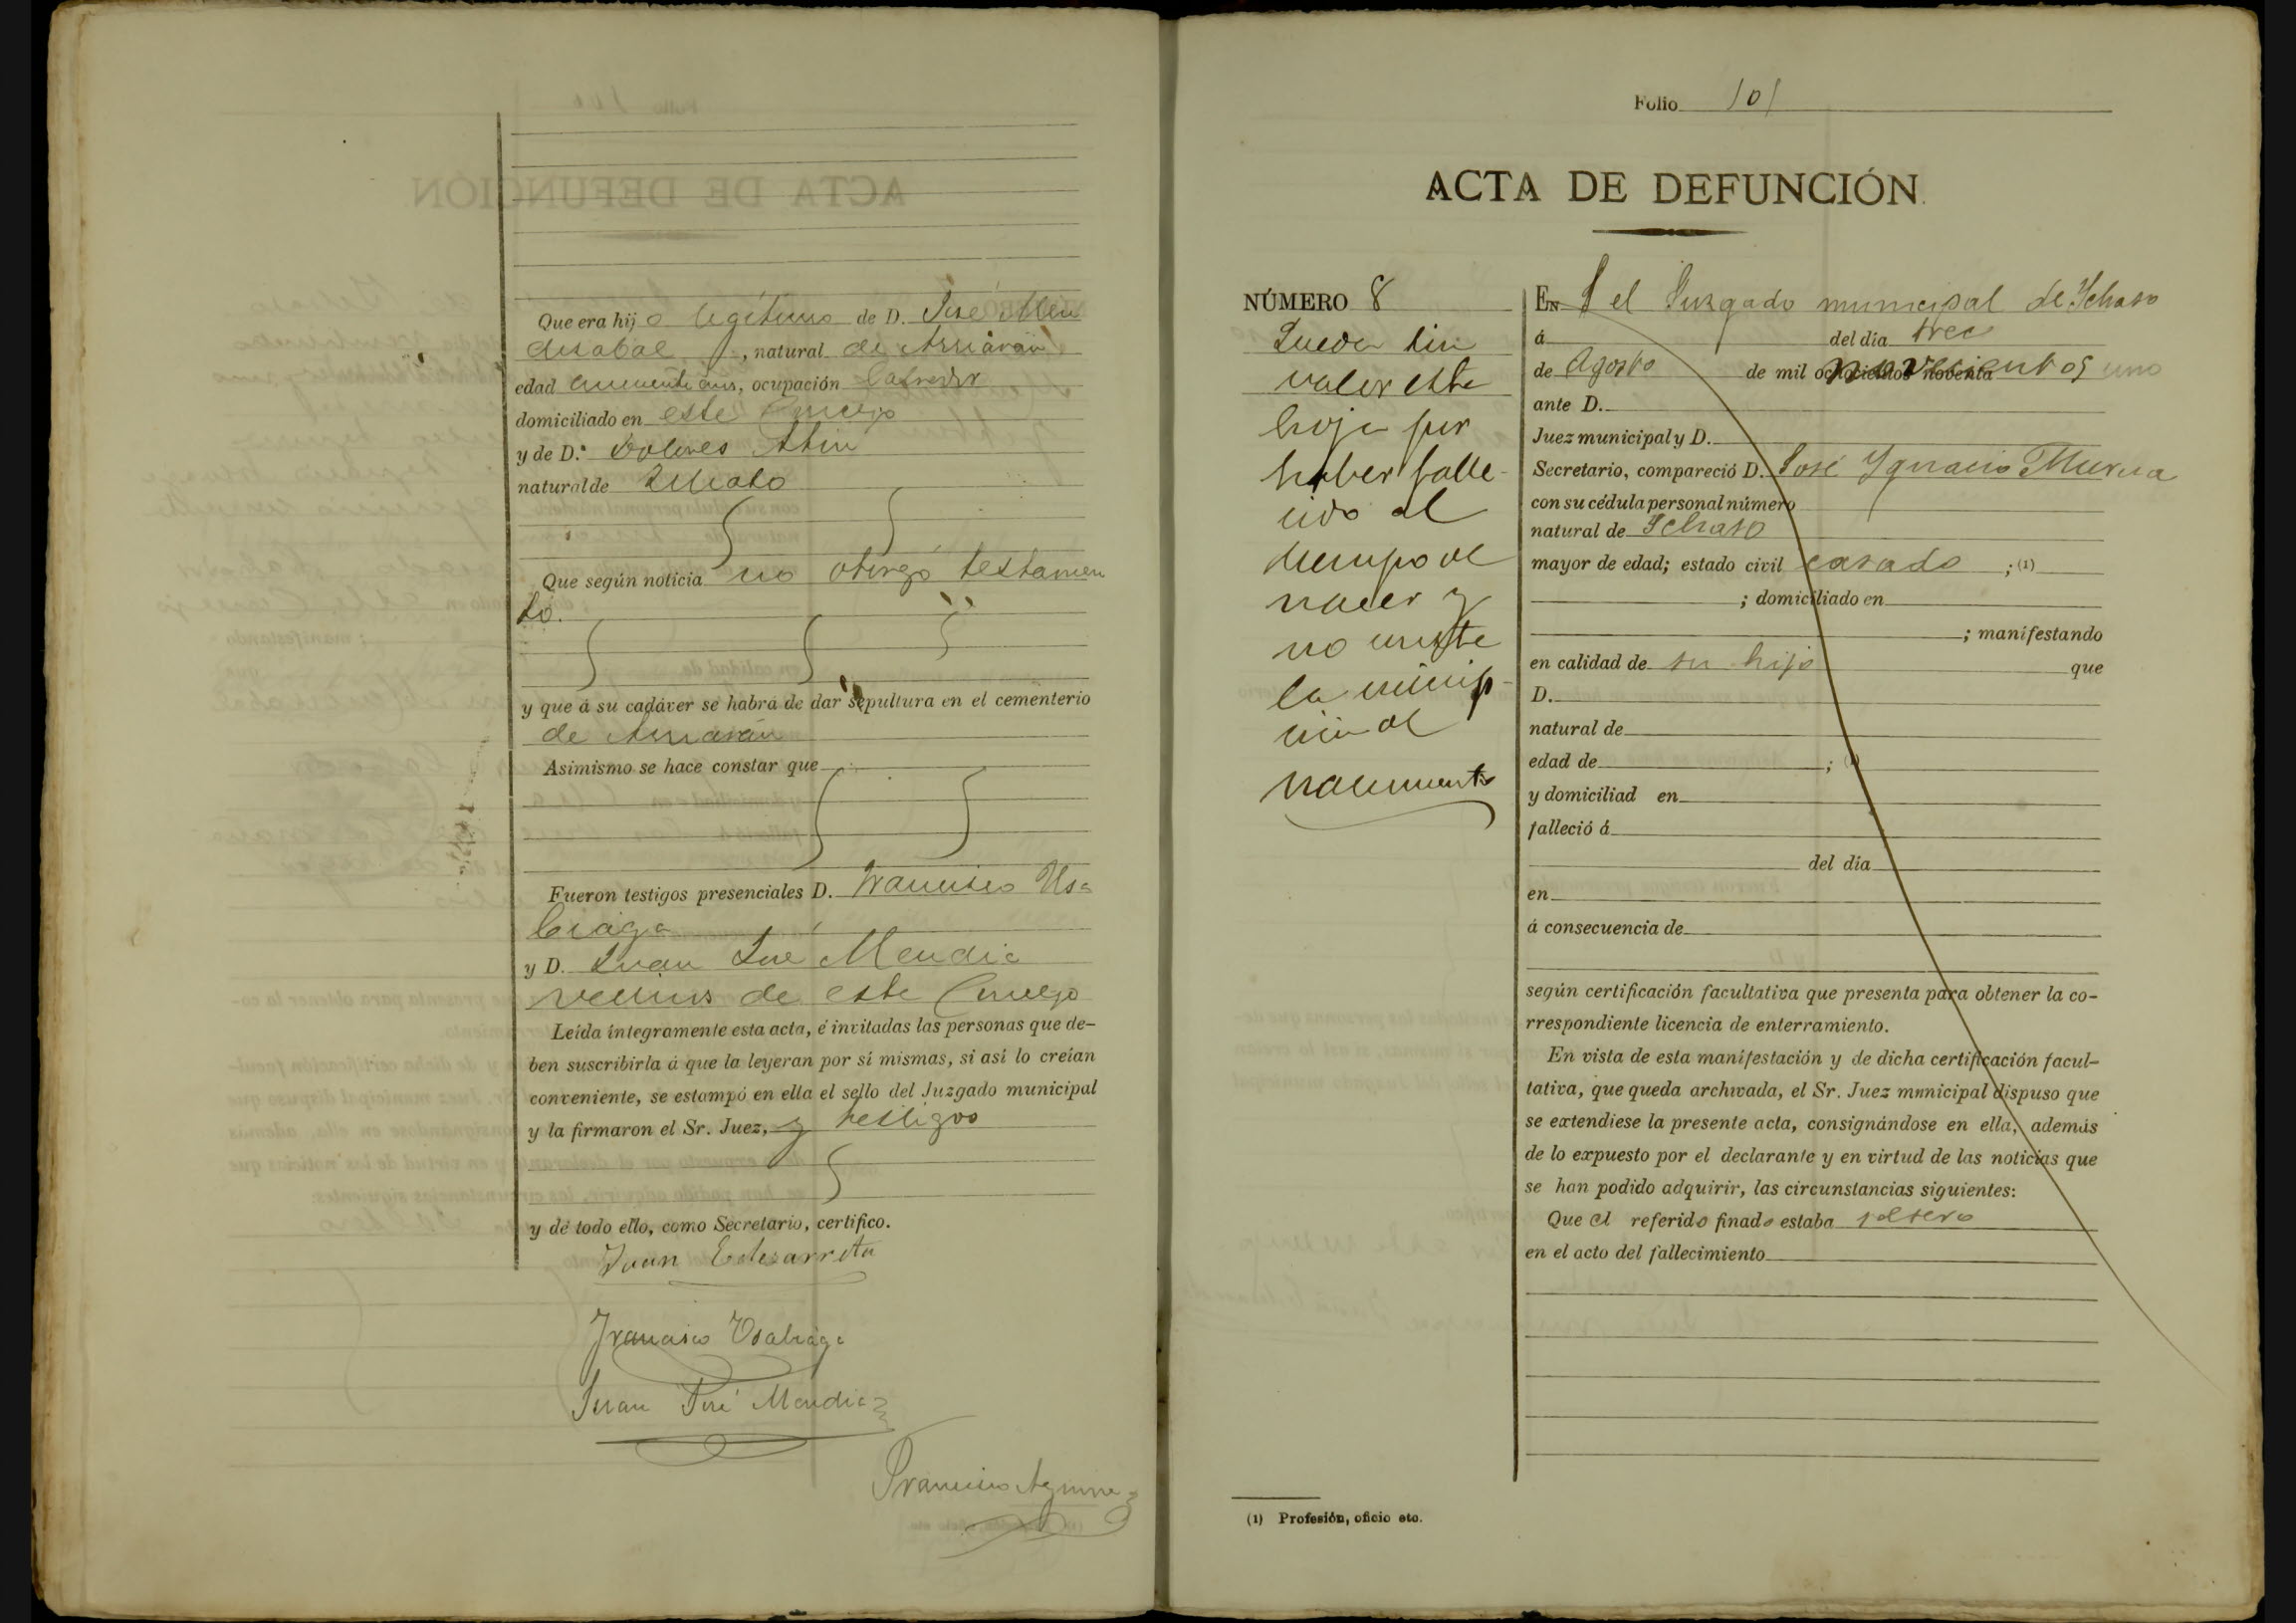 Que era hijo legítimo de D. José Men
disabal, natural de Arriarán
edad cincuenta años, ocupación labrador
domiciliado en este Concejo
y de D.ª Dolores
natural de
Que según noticia no otorgó testamen
to.
y que á su cadáver se habrá de dar sepultura en el cementerio
de Arriarán
Asimismo se hace constar que
Fueron testigos presenciales D. Francisco Usa
biaga
y D. Juan José Mendia
vecinos de este Concejo
Leída íntegramente esta acta, é invitadas las personas que de-
ben suscribirla á que la leyeran por sí mismas, si así lo creían
conveniente, se estampó en ella el sello del Juzgado municipal
y la firmaron el Sr. Juez, y testigos
y de todo ello, como Secretario, certifico.
Juan Echezarreta
Francisco Usabiaga
Juan José Mendia
Francisco
Folio 101
ACTA DE DEFUNCIÓN.
NÚMERO 8
Queda sin
valor esta
hoja por
haber falle-
cido al
tiempo de
nacer y
no existe
la inscrip-
ción de
nacimiento
EN el Juzgado municipal de Ichaso
á del día trece
de Agosto de mil ochocientos noventa novecientos uno
ante D.
Juez municipal y D.
Secretario, compareció D. José Ygnacio Murua
con su cédula personal número
natural de Ichaso
mayor de edad; estado civil casado ; (1)
; domiciliado en
; manifestando
en calidad de su hijo que
D.
natural de
edad de ; (1)
y domiciliad en
falleció á
del día
en
á consecuencia de
según certificación facultativa que presenta para obtener la co-
rrespondiente licencia de enterramiento.
En vista de esta manifestación y de dicha certificación facul-
tativa, que queda archivada, el Sr. Juez mnnicipal dispuso que
se extendiese la presente acta, consignándose en ella, además
de lo expuesto por el declarante y en virtud de las noticias que
se han podido adquirir, las circunstancias siguientes:
Que el referido finado estaba soltero
en el acto del fallecimiento
(1) Profesión, oficio etc.